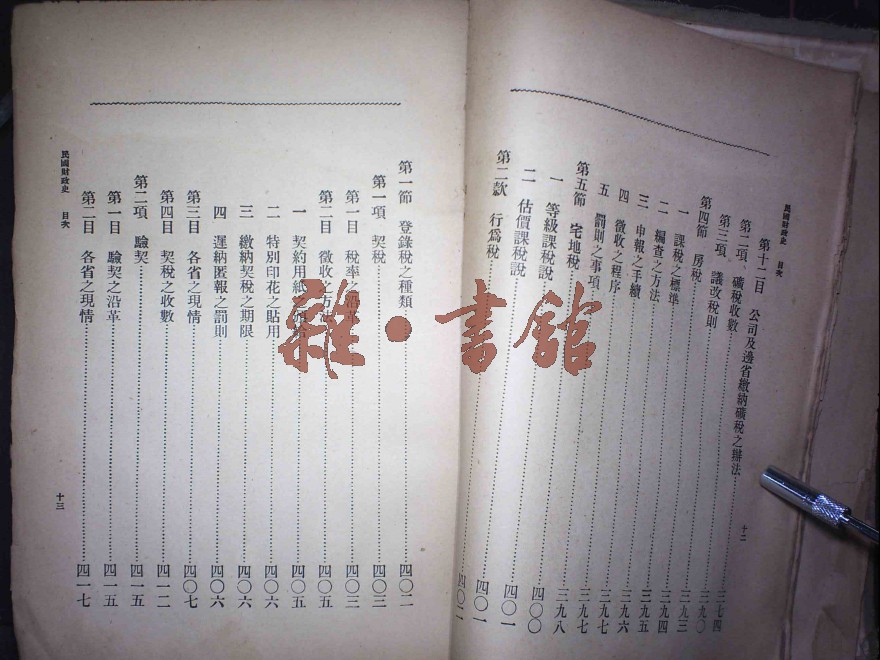 民國財政史 目次
第十二目 公司及邊省繳納礦稅之辦法……三七四
第二項 礦稅收數……三九〇
第三項 議改稅則……三九三
第四節 房稅……三九四
一 課稅之標準……三九五
二 編查之方法……三九六
三 申報之手續……三九七
四 徵收之程序……三九七
五 罰則之事項……三九八
第五節 宅地稅……四〇〇
一 等級課稅說……四〇一
二 估價課稅說……四〇一
第二款 行爲稅……四〇二
十二
第一節 登錄稅之種類……四〇二
第一項 契稅……四〇三
第一目 稅率之沿革……四〇三
第二目 徵收之方法……四〇五
一 契約用紙之……四〇五
二 特別印花之貼用……四〇六
三 繳納契稅之期限……四〇六
四 遲納匿報之罰則……四〇六
第三目 各省之現情……四〇七
第四目 契稅之收數……四一二
第二項 驗契……四一五
第一目 驗契之沿革……四一五
第二目 各省之現情……四一七
民國財政史 目次
十三
雜·書館